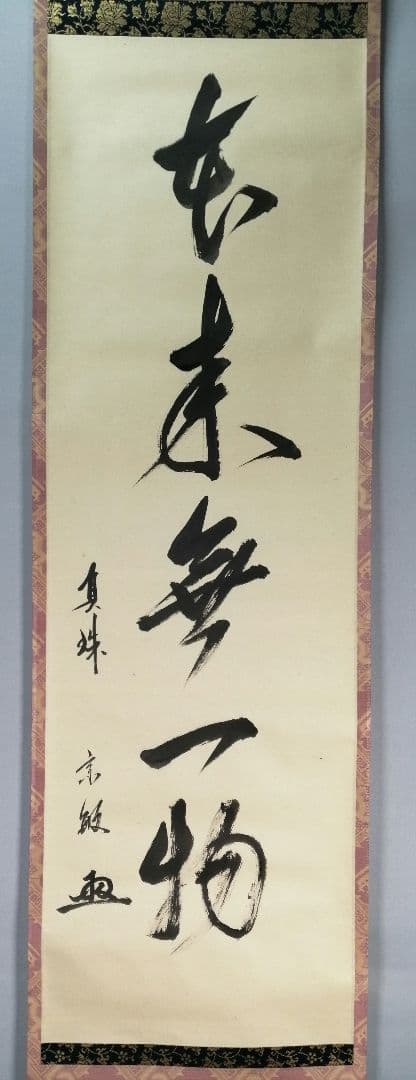 本来無一物
真珠 宗敏